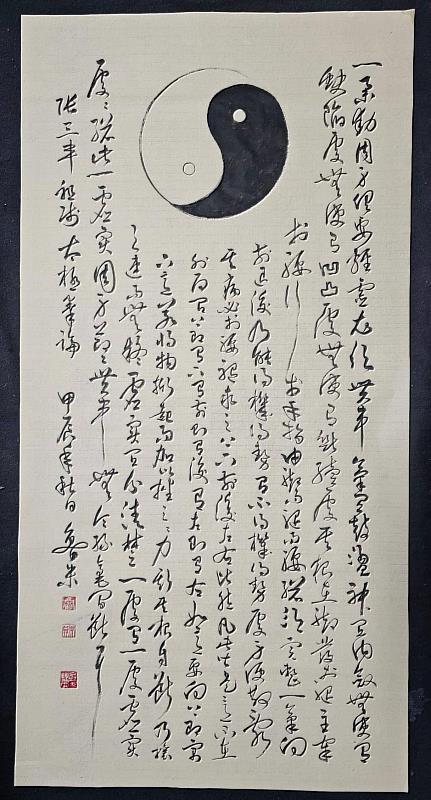 一舉動周身俱要輕靈尤須貫串氣宜鼓盪神宜內斂無使有
缺陷處無使有凹凸處無使有斷續處其根在腳發於腿主宰
於腰形於手指由腳而腿而腰總須完整一氣向
前退後乃能得機得勢有不得機得勢處身便散亂
其病必於腰腿求之上下前後左右皆然凡此皆是意不在
外面有上即有下有前即有後有左即有右如意要向上即寓
下意若將物掀起而加以挫之之力斯其根自斷乃壞
之速而無疑虛實宜分清楚一處有一處虛實
處處總此一虛實周身節節貫串無令絲毫間斷耳
張三丰祖師太極拳論 甲辰年秋日